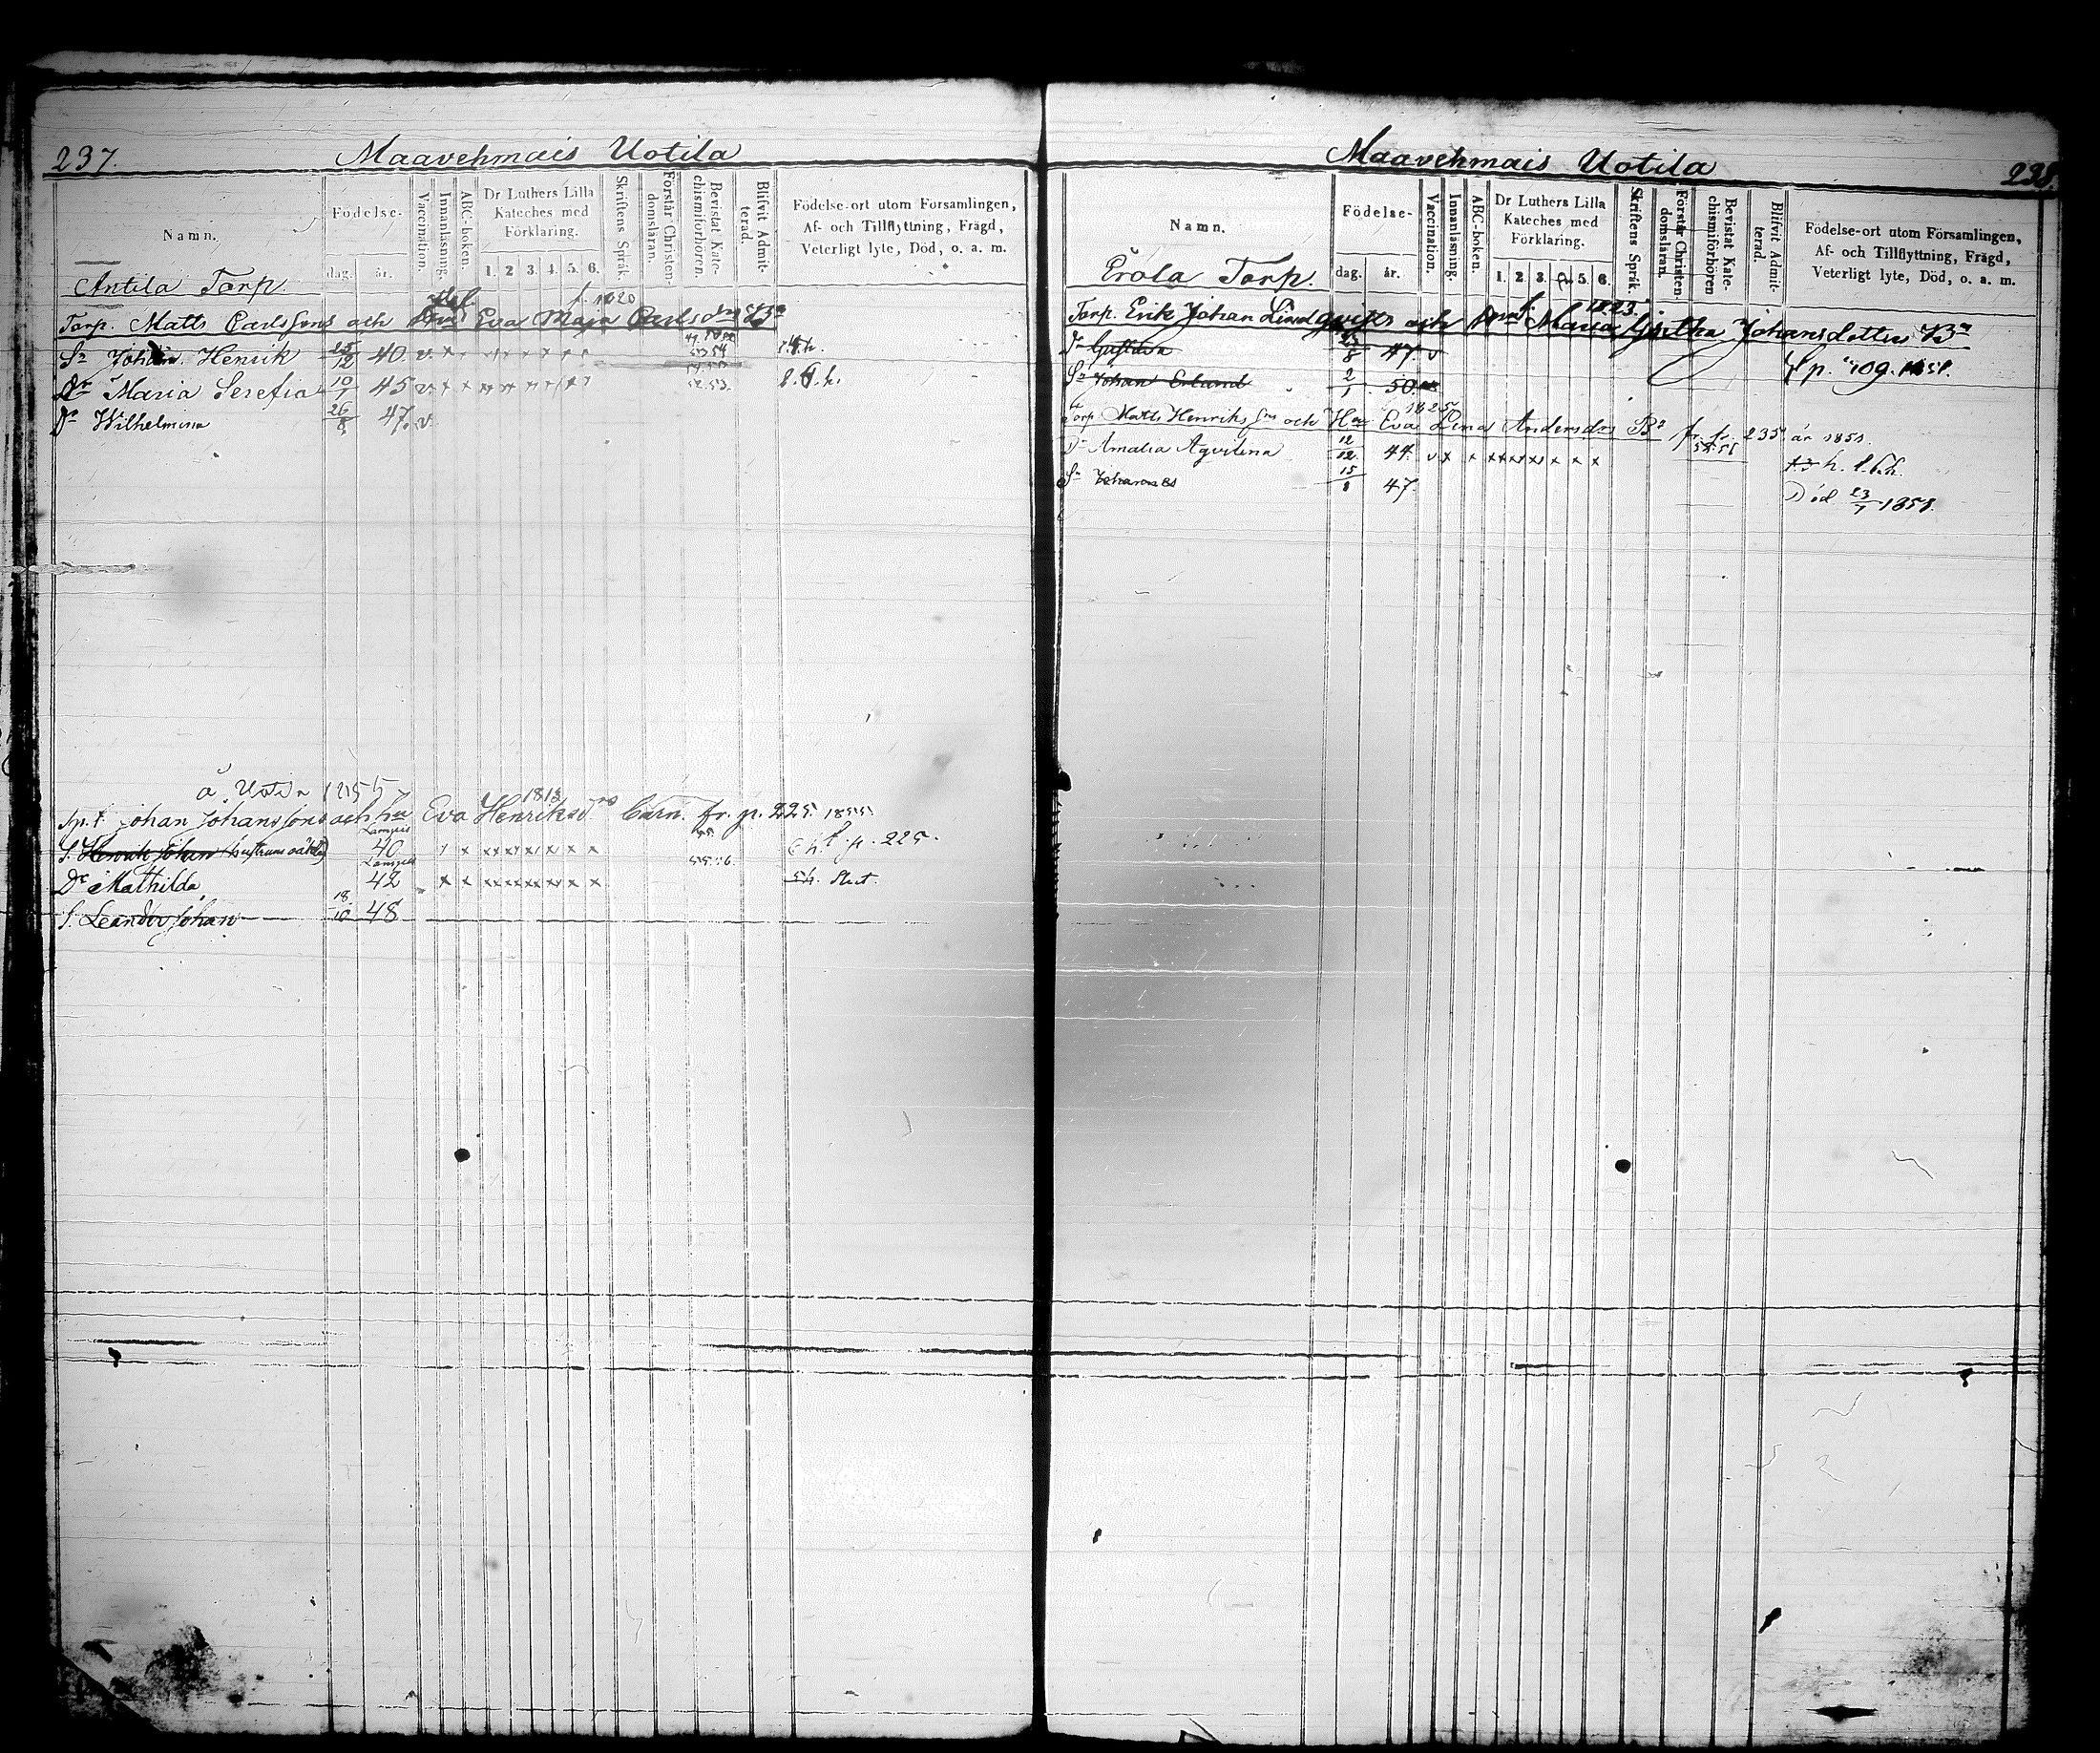 237.
Maavehmais Uotila
Namn.
Födelse-
dag. år.
Vaccination.
Innanläsning.
ABC-boken.
Dr Luthers Lilla Kateches med Förklaring.
1. 2 3. 4. 5. 6.
Skriftens Språk.
Förstår Christendomsläran.
Bevistat Katechismiförhören.
Blifvit Admitterad.
Födelse-ort utom Församlingen, Af- och Tillflyttning, Frägd, Veterligt lyte, Död, o. a. m.
Antila Torp.
f. 1820
Torp. Matts Carlssons och Eva Maja Carlsdrs Bn
Sn Johan Henrik 25/12 40. v.
Dr Maria Serefia 10/1 45 v. x x
Dr Wilhelmina 26/8 47. v.
å Uotila 1855
1818
Johan Johanssons och hu Eva Henriksd. Barn. fr. p. 225. 1855
S. Henrik Johan 40 x x x x x x x x p. 225.
Dr Mathilda 42 x x x x x x x x
S. Leander Johan 18/10 48
Maavehmais Uotila
238.
Namn.
Födelse-
dag. år.
Vaccination.
Innanläsning.
ABC-boken.
Dr Luthers Lilla Kateches med Förklaring.
1. 2. 3. 5. 6.
Skriftens Språk.
Förstår Christendomsläran.
Bevistat Katechismiförhören
Blifvit Admitterad.
Födelse-ort utom Församlingen, Af- och Tillflyttning, Frägd, Veterligt lyte, Död, o. a. m.
Erola Torp.
1823.
Torp. Erik Johan Lindqvists och Maria Johansdotters Bn
Dr Gustava 23/8 47. v
Sn Johan Erland 2/1 50. p. 109. 1851.
1825
Torp Matts Henrikssns och Hus Eva Lena Andersdrs Bn fr. p. 235 år 1851.
Dr Amalia Aqvilina 12/12. 44. v x x x x x x x x
Sn Johannes 15/8 47. Död 23/7 1851.